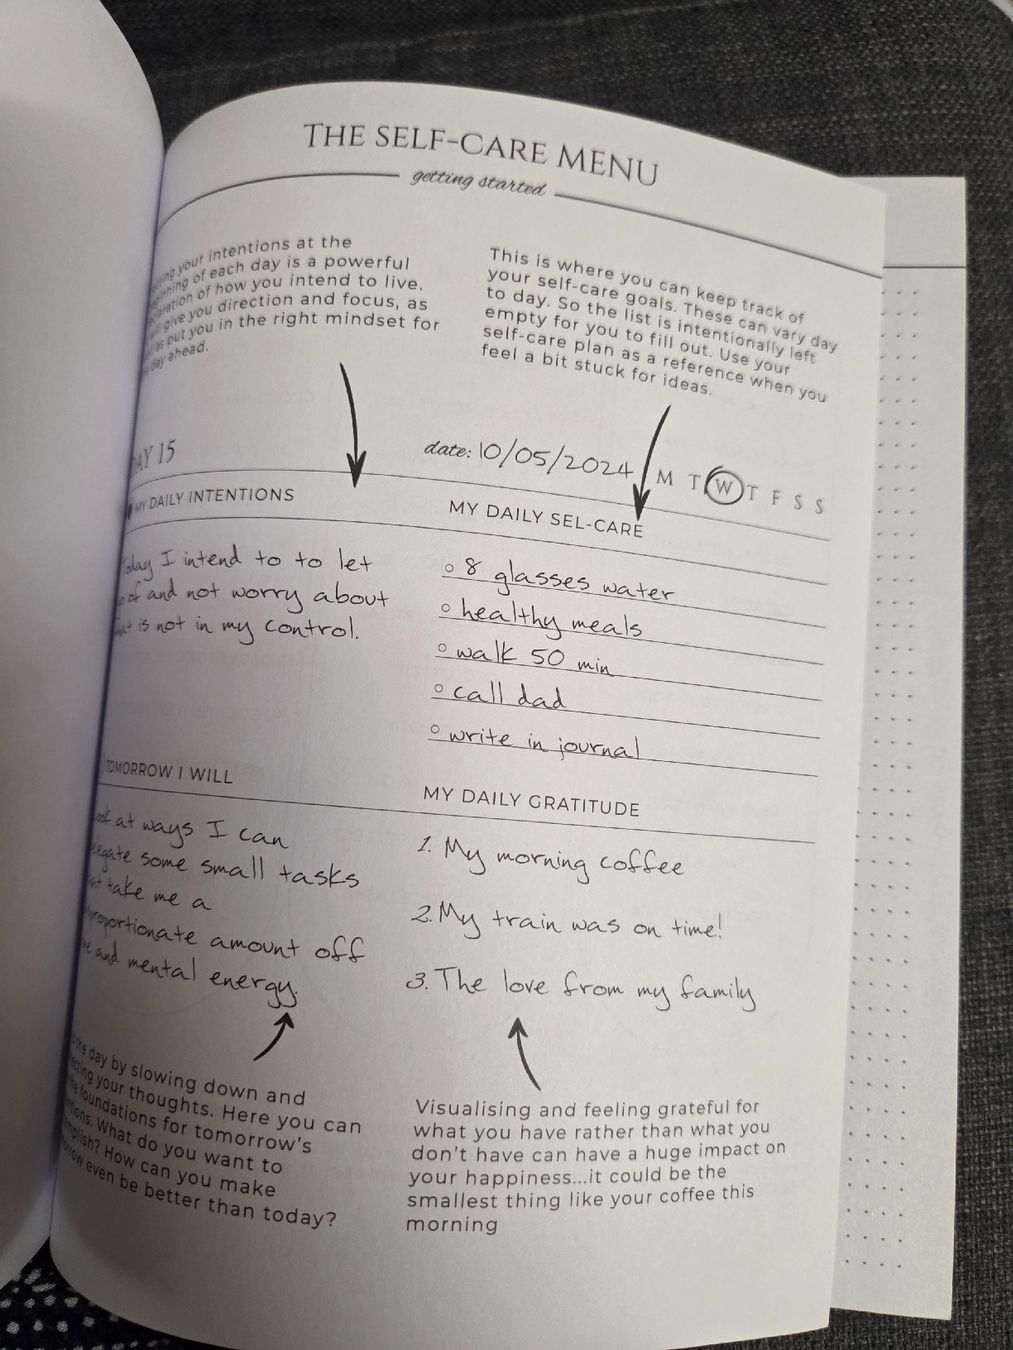 THE SELF-CARE MENU
getting started
your intentions at the
of each day is a powerful
of how you intend to live.
give you direction and focus, as
as put you in the right mindset for
day ahead.
This is where you can keep track of
your self-care goals. These can vary day
to day. So the list is intentionally left
empty for you to fill out. Use your
self-care plan as a reference when you
feel a bit stuck for ideas.
DAY 15
date: 10/05/2024 M T W T F S S
MY DAILY INTENTIONS
Today I intend to to let
go of and not worry about
what is not in my control.
MY DAILY SEL-CARE
8 glasses water
healthy meals
walk 50 min
call dad
write in journal
TOMORROW I WILL
look at ways I can
some small tasks
that take me a
amount off
and mental energy.
MY DAILY GRATITUDE
1. My morning coffee
2. My train was on time!
3. The love from my family
the day by slowing down and
your thoughts. Here you can
the foundations for tomorrow's
What do you want to
How can you make
even be better than today?
Visualising and feeling grateful for
what you have rather than what you
don't have can have a huge impact on
your happiness...it could be the
smallest thing like your coffee this
morning